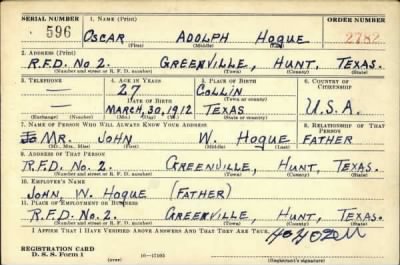 SERIAL NUMBER 1. NAME (Print) ORDER NUMBER
596 OSCAR ADOLPH HOGUE 2782
(First) (Middle) (Last)
2. ADDRESS (Print)
R.F.D. No. 2. GREENVILLE, HUNT, TEXAS.
(Number and street or R. F. D. number) (Town) (County) (State)
3. TELEPHONE 4. AGE IN YEARS 5. PLACE OF BIRTH 6. COUNTRY OF CITIZENSHIP
— 27 COLLIN
DATE OF BIRTH (Town or county)
— MARCH, 30, 1912 TEXAS U.S.A.
(Exchange) (Number) (Mo.) (Day) (Yr.) (State or country)
7. NAME OF PERSON WHO WILL ALWAYS KNOW YOUR ADDRESS 8. RELATIONSHIP OF THAT PERSON
MR. JOHN W. HOGUE FATHER
(Mr., Mrs., Miss) (First) (Middle) (Last)
9. ADDRESS OF THAT PERSON
R.F.D. No. 2. GREENVILLE, HUNT, TEXAS.
(Number and street or R. F. D. number) (Town) (County) (State)
10. EMPLOYER'S NAME
JOHN, W. HOGUE (FATHER)
11. PLACE OF EMPLOYMENT OR BUSINESS
R.F.D. No. 2. GREENVILLE, HUNT, TEXAS.
(Number and street or R. F. D. number) (Town) (County) (State)
I AFFIRM THAT I HAVE VERIFIED ABOVE ANSWERS AND THAT THEY ARE TRUE.
REGISTRATION CARD
D. S. S. Form 1 (over) 16—17105 (Registrant's signature)